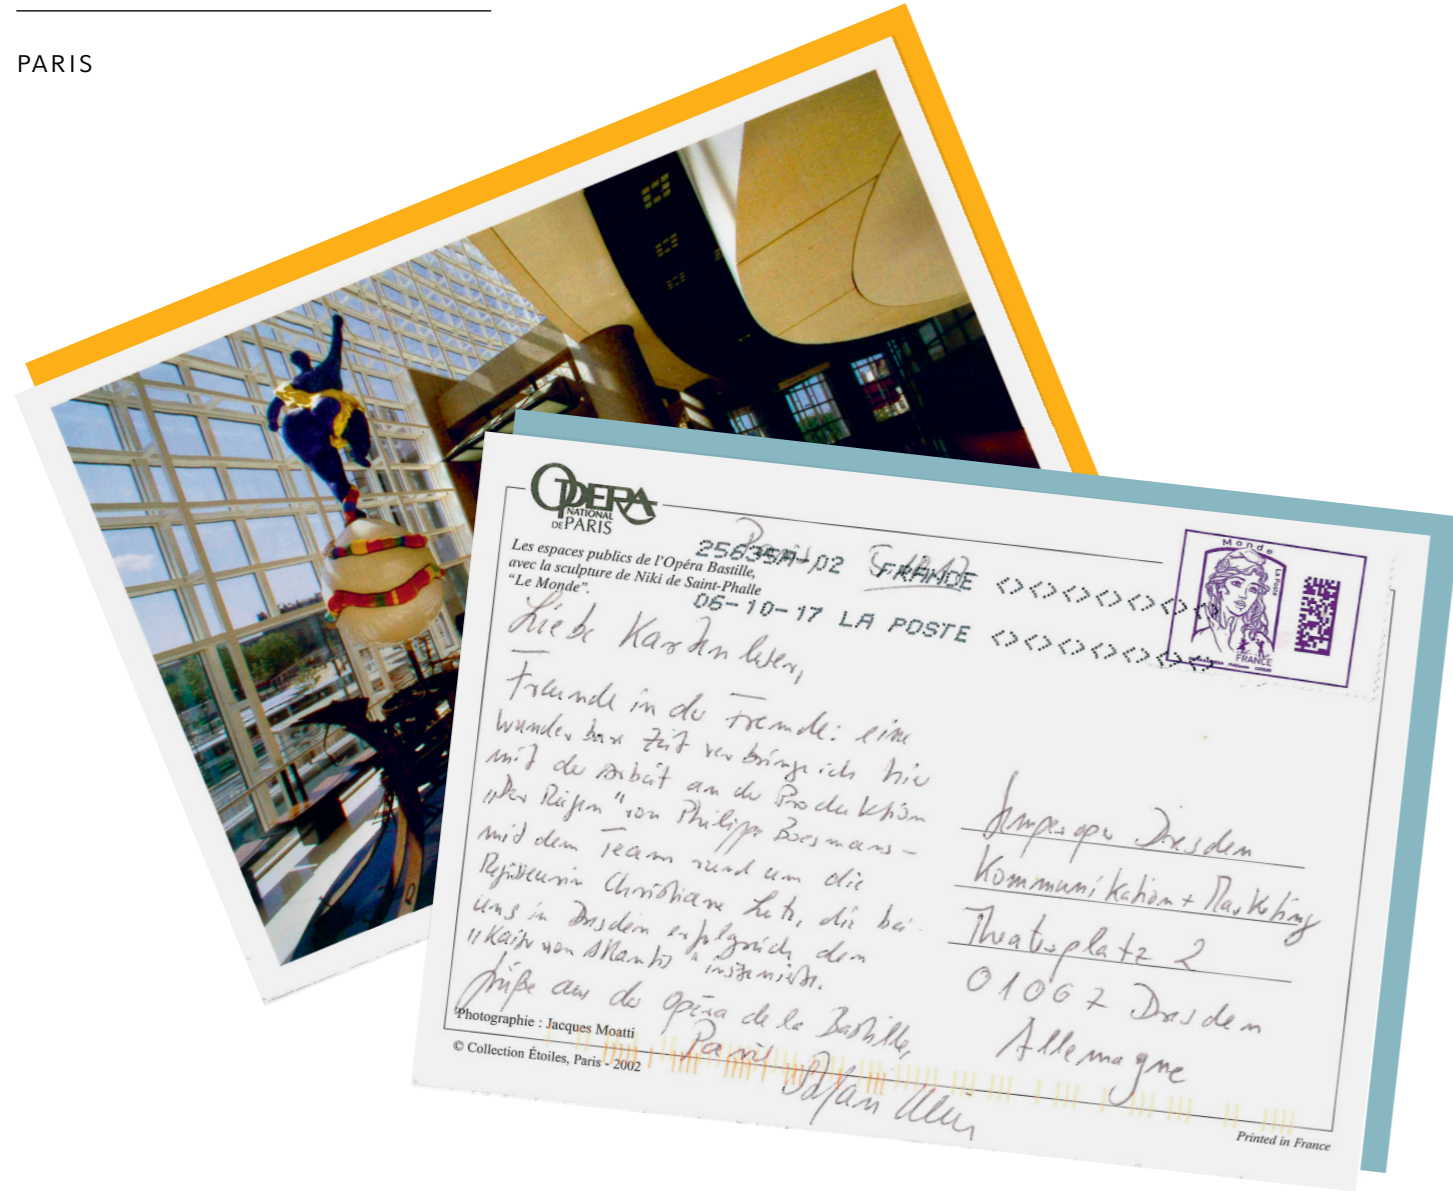 PARIS
OPERA
NATIONAL
DE PARIS
Les espaces publics de l'Opéra Bastille,
avec la sculpture de Niki de Saint-Phalle
"Le Monde".
25835A-02 FRANCE
06-10-17 LA POSTE
Monde
La Poste
FRANCE
Liebe Kartenleser,
Freunde in der Fremde: eine
wunderbare Zeit verbringe ich hier
mit der Arbeit an der Produktion
„Der Reigen" von Philippe Boesmans –
mit dem Team rund um die
Regisseurin Christiane Lutz, die bei
uns in Dresden erfolgreich den
„Kaiser von Atlantis" inszenierte.
Grüße aus der Opéra de la Bastille,
Paris
Semperoper Dresden
Kommunikation + Marketing
Theaterplatz 2
01067 Dresden
Allemagne
Photographie : Jacques Moatti
© Collection Étoiles, Paris - 2002
Printed in France